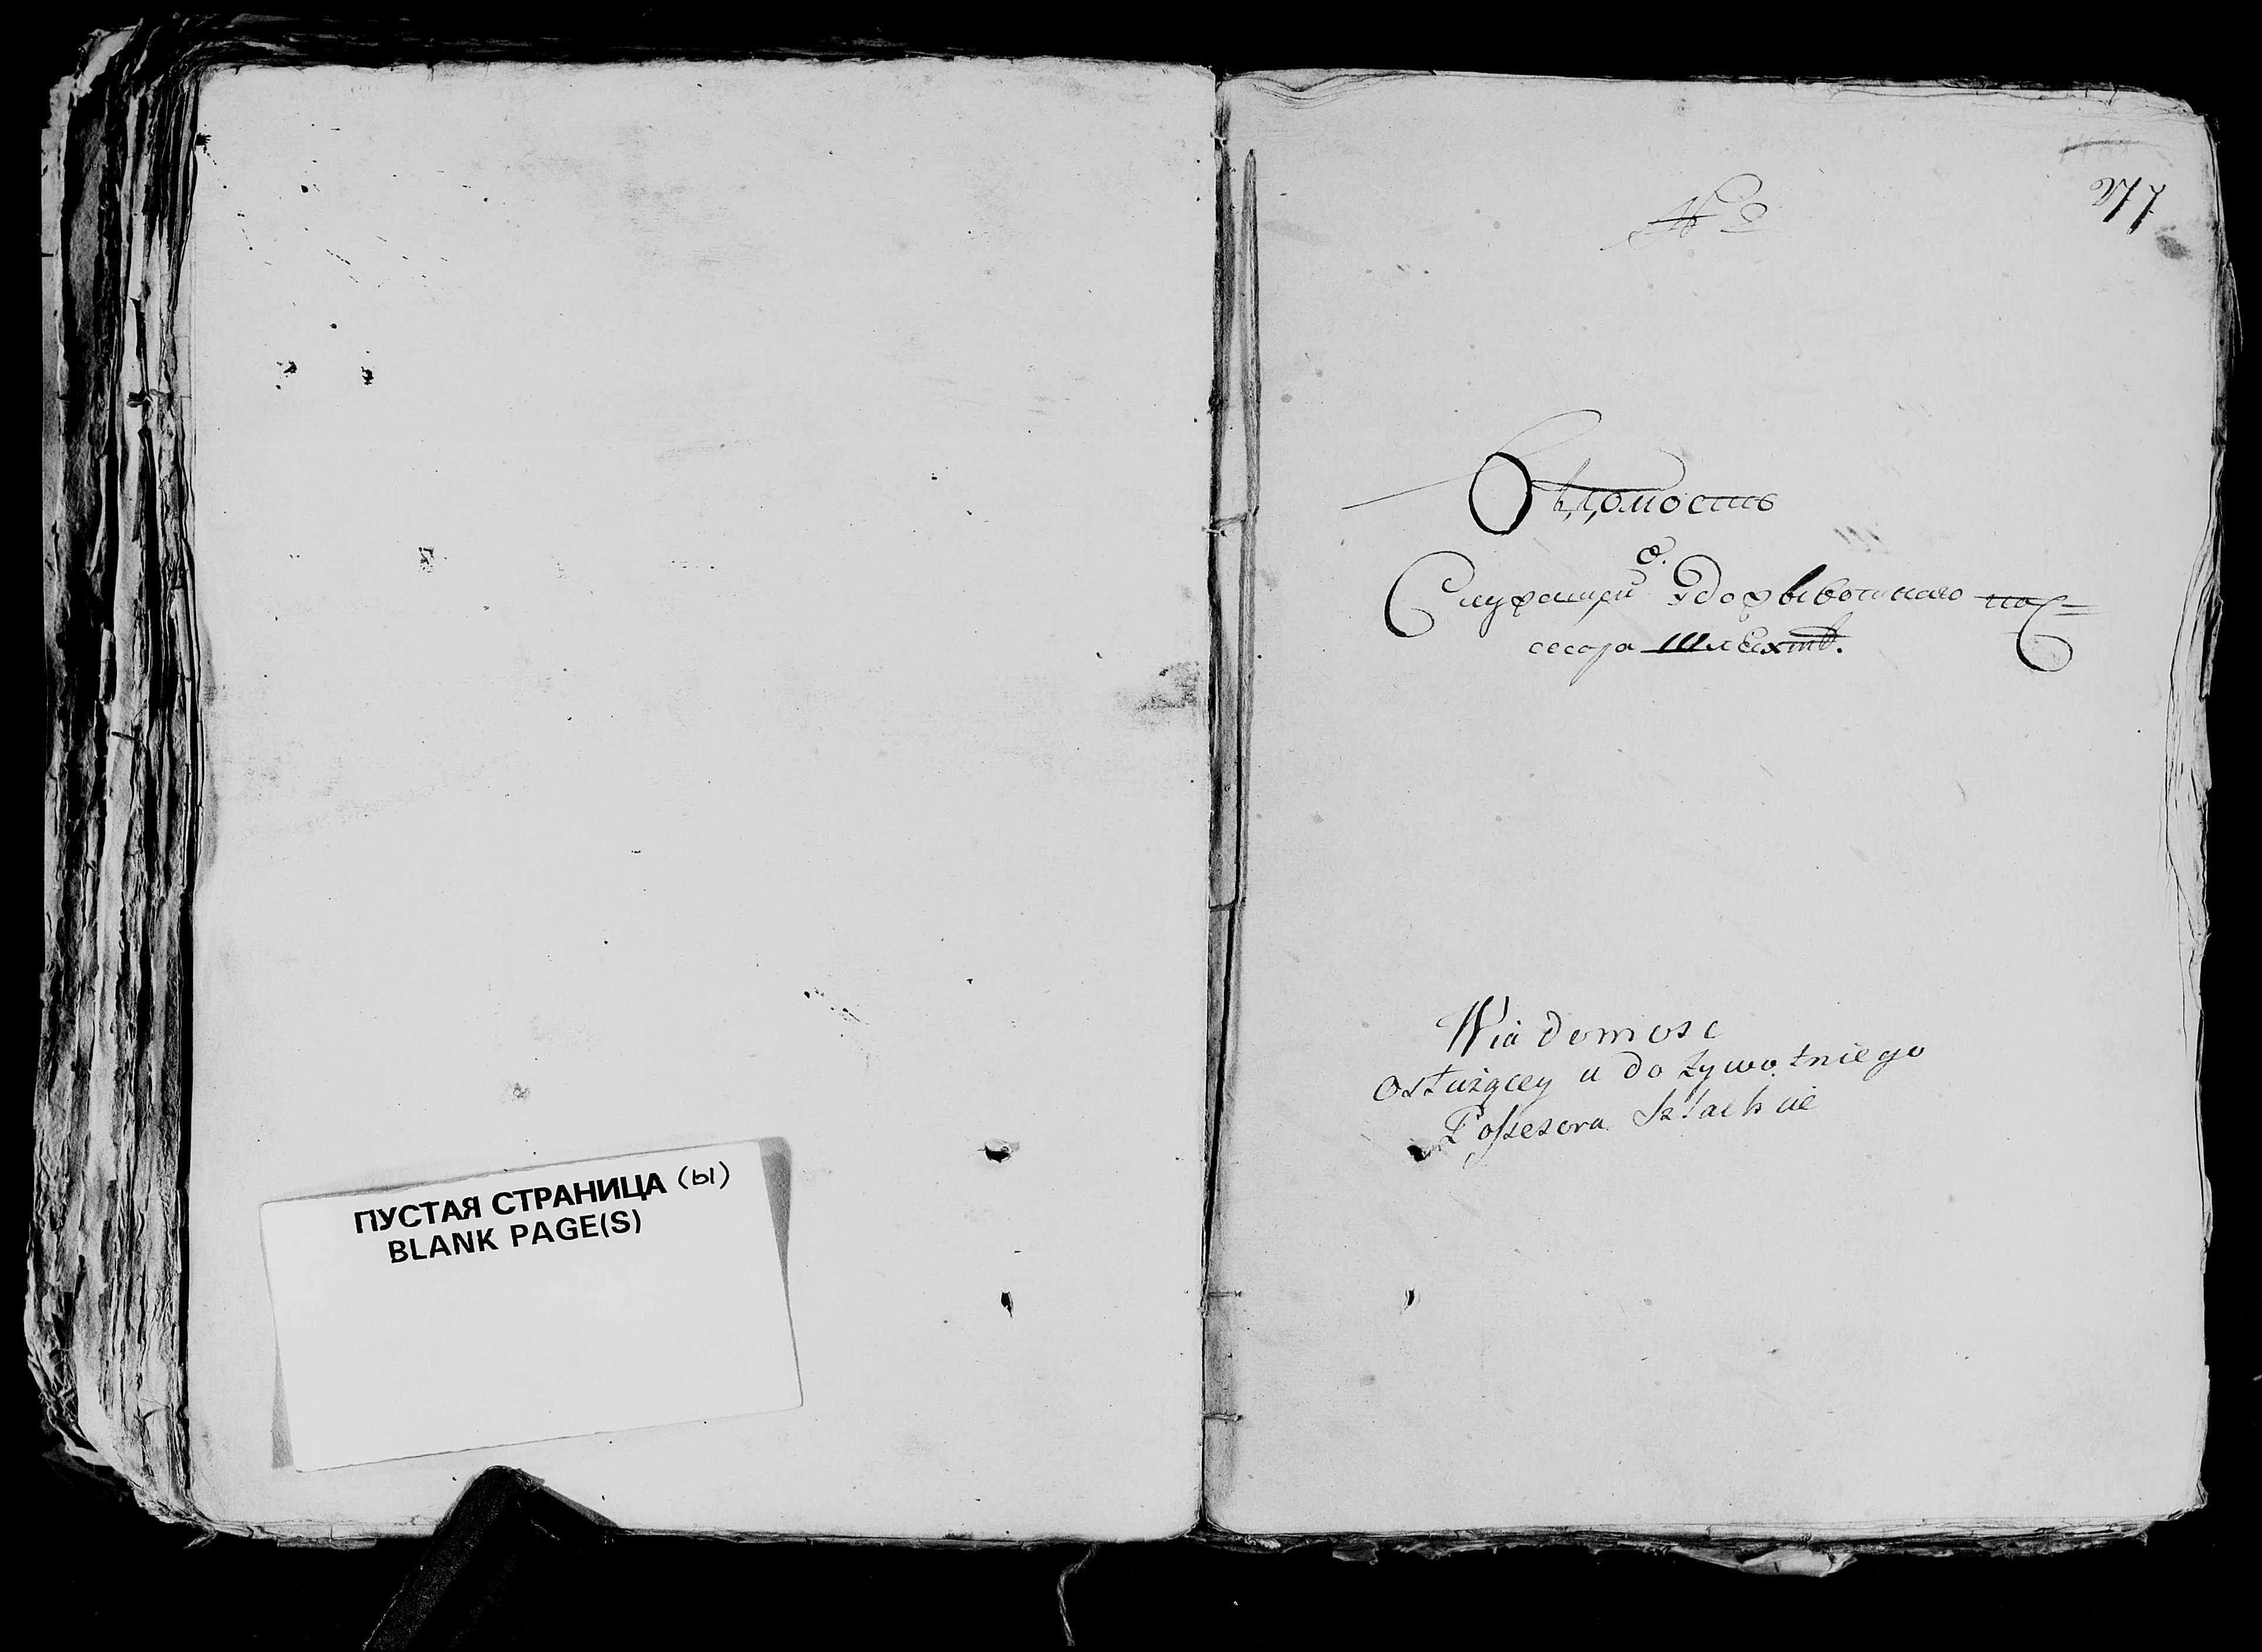 ПУСТАЯ СТРАНИЦА (Ы)
BLANK PAGE(S)
Вѣдомость
о
Служащей Удожывотнаго пос=
сесора Шлехтѣ.
Wiadomosc
o Służącey u dożywotniego
Possesora Szlachcie